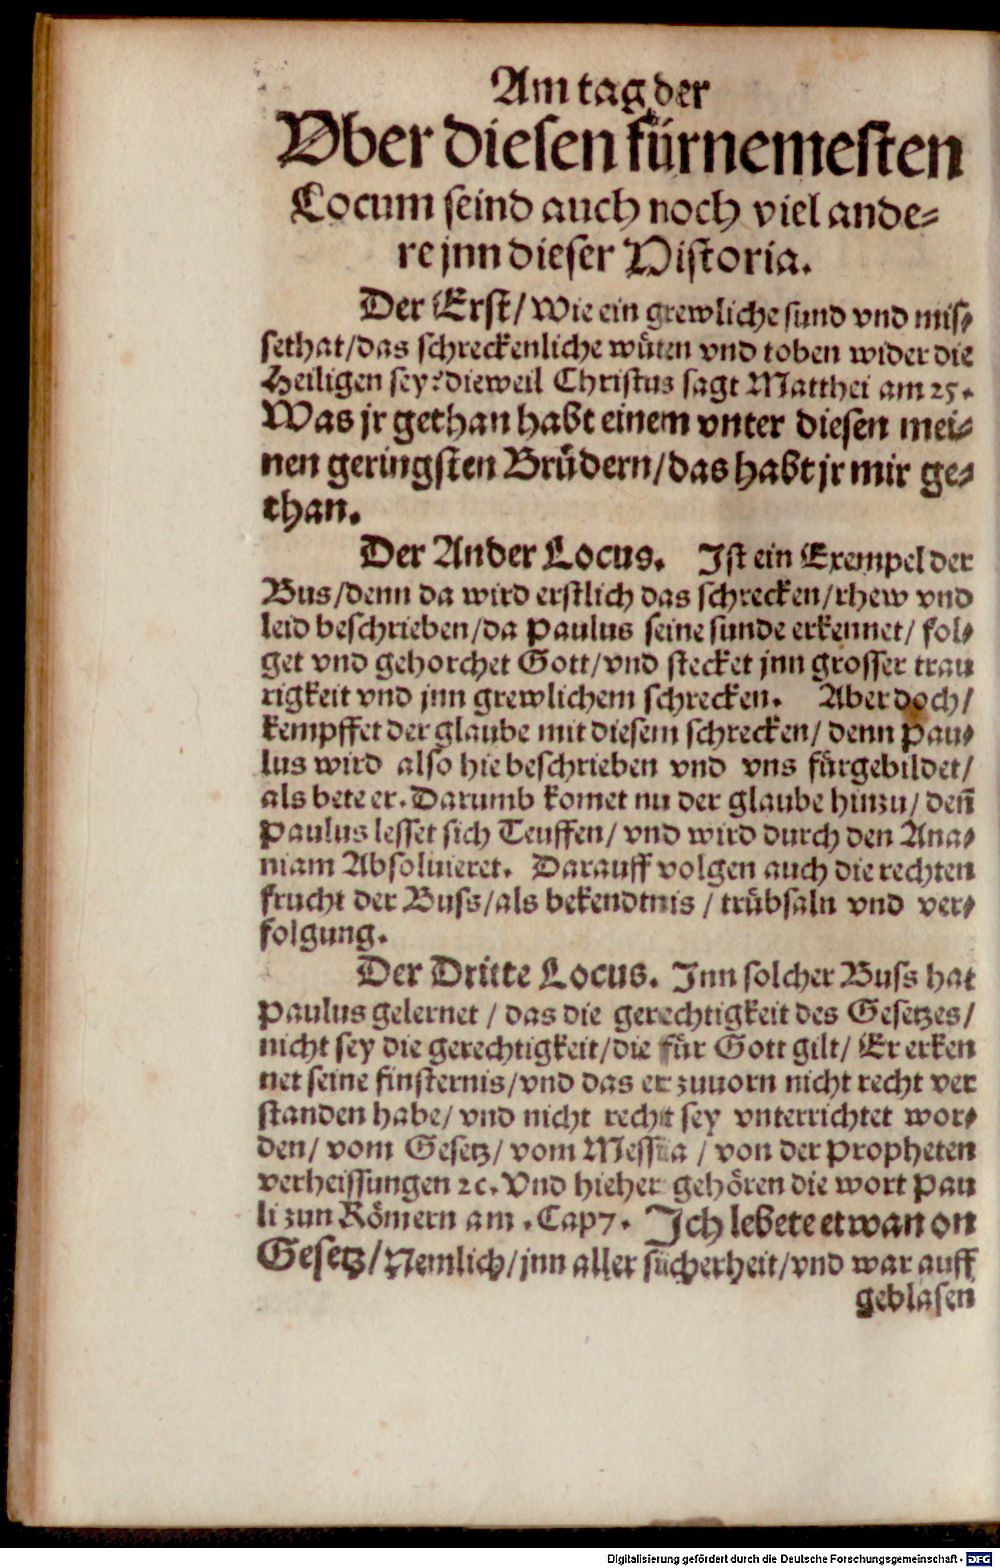 Am tag der
Vber diesen fürnemesten
Locum seind auch noch viel ande-
re jnn dieser Historia.
Der Erst/ Wie ein grewliche sund vnd mis-
sethat/das schreckenliche wüten vnd toben wider die
Heiligen sey? dieweil Christus sagt Matthei am 25.
Was jr gethan habt einem vnter diesen mei-
nen geringsten Brüdern/das habt jr mir ge-
than.
Der Ander Locus. Ist ein Exempel der
Bus/denn da wird erstlich das schrecken/rhew vnd
leid beschrieben/da Paulus seine sunde erkennet/ fol-
get vnd gehorchet Gott/vnd stecket jnn grosser trau
rigkeit vnd jnn grewlichem schrecken. Aber doch/
kempffet der glaube mit diesem schrecken/ denn Pau-
lus wird also hie beschrieben vnd vns fürgebildet/
als bete er. Darumb komet nu der glaube hinzu/ deñ
Paulus lesset sich Teuffen/ vnd wird durch den Ana-
niam Absoluieret. Darauff volgen auch die rechten
frucht der Buss/als bekendtnis / trübsaln vnd ver-
folgung.
Der Dritte Locus. Inn solcher Buss hat
Paulus gelernet / das die gerechtigkeit des Gesetzes/
nicht sey die gerechtigkeit/die für Gott gilt/ Er erken
net seine finsternis/vnd das er zuuorn nicht recht ver
standen habe/ vnd nicht recht sey vnterrichtet wor-
den/ vom Gesetz/ vom Messia / von der Propheten
verheissungen ꝛc. Vnd hieher gehören die wort Pau
li zun Römern am . Cap7. Ich lebete etwan on
Gesetz/ Nemlich/ jnn aller sicherheit/vnd war auff
geblasen
Digitalisierung gefördert durch die Deutsche Forschungsgemeinschaft - DFG